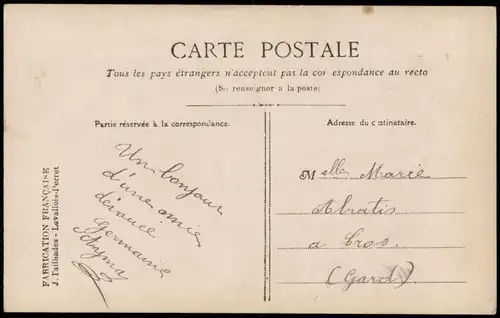 CARTE POSTALE
Tous les pays étrangers n'acceptent pas la cor espondance au recto
(Se renseigner à la poste)
Partie réservée à la correspondance.
Adresse du destinataire.
Un bonjour
d'une amie
dévouée
Germaine
M elle Marie
Abratis
a Cros
(Gard)
FABRICATION FRANÇAISE
J. Tailhades - Levallois-Perret